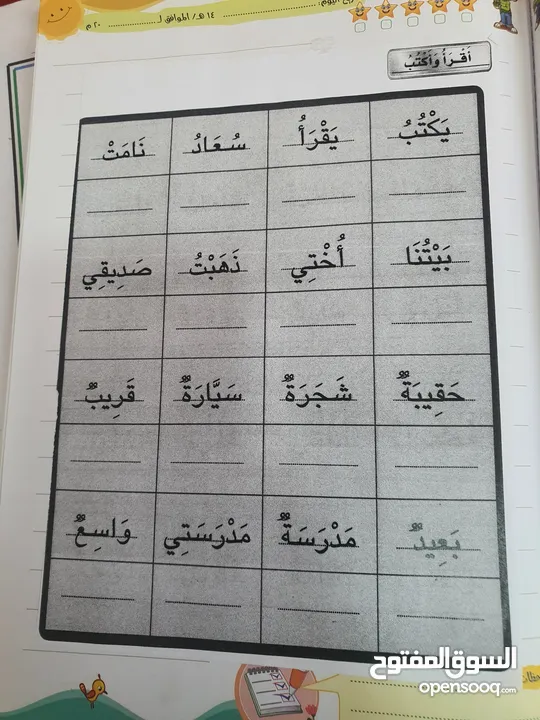 اليوم:
١٤ هـ/ الموافق لـ ٢٠ م
أَقْرَأُ وَأَكْتُبُ
يَكْتُبُ يَقْرَأُ سُعَادُ نَامَتْ
بَيْتُنَا أُخْتِي ذَهَبْتُ صَدِيقِي
حَقِيبَةٌ شَجَرَةٌ سَيَّارَةٌ قَرِيبٌ
بَعِيدٌ مَدْرَسَةٌ مَدْرَسَتِي وَاسِعٌ
السوق المفتوح
opensooq.com